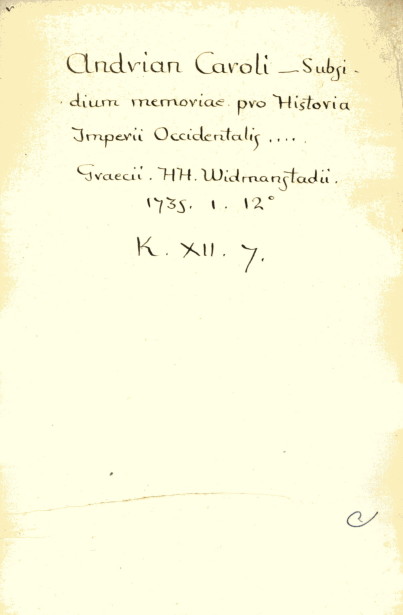 Andrian Caroli — Subsi-
dium memoriae pro Historia
Imperii Occidentalis ....
Graecii. HH. Widmanstadii.
1735. 1. 12°
K. XII. 7.